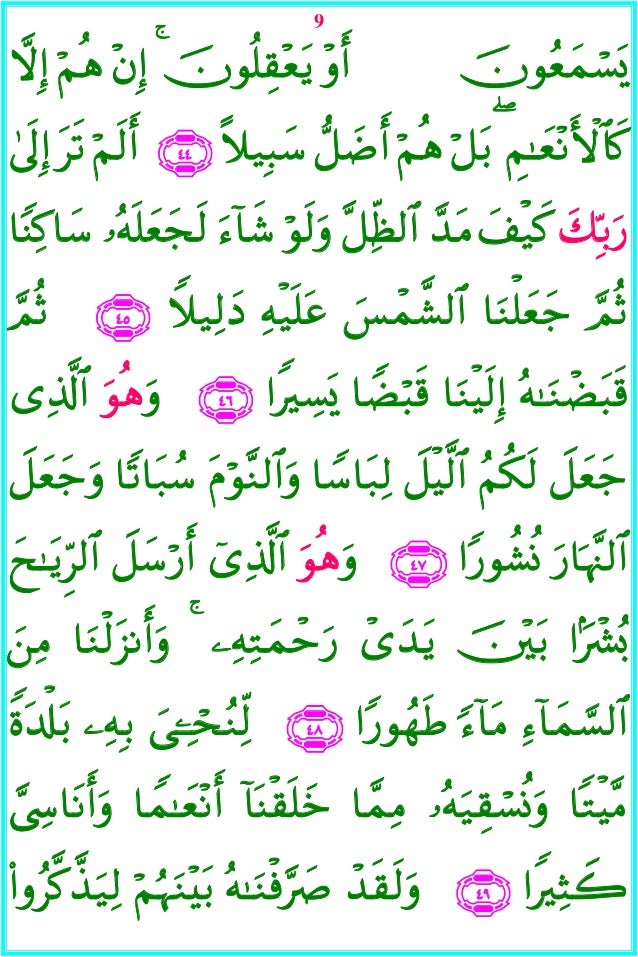 9
يَسْمَعُونَ أَوْ يَعْقِلُونَ ۚ إِنْ هُمْ إِلَّا
كَٱلْأَنْعَـٰمِ ۖ بَلْ هُمْ أَضَلُّ سَبِيلًا ٤٤ أَلَمْ تَرَ إِلَىٰ
رَبِّكَ كَيْفَ مَدَّ ٱلظِّلَّ وَلَوْ شَآءَ لَجَعَلَهُۥ سَاكِنًا
ثُمَّ جَعَلْنَا ٱلشَّمْسَ عَلَيْهِ دَلِيلًا ٤٥ ثُمَّ
قَبَضْنَـٰهُ إِلَيْنَا قَبْضًا يَسِيرًا ٤٦ وَهُوَ ٱلَّذِى
جَعَلَ لَكُمُ ٱلَّيْلَ لِبَاسًا وَٱلنَّوْمَ سُبَاتًا وَجَعَلَ
ٱلنَّهَارَ نُشُورًا ٤٧ وَهُوَ ٱلَّذِىٓ أَرْسَلَ ٱلرِّيَـٰحَ
بُشْرًۢا بَيْنَ يَدَىْ رَحْمَتِهِۦ ۚ وَأَنزَلْنَا مِنَ
ٱلسَّمَآءِ مَآءً طَهُورًا ٤٨ لِّنُحْـِۧىَ بِهِۦ بَلْدَةً
مَّيْتًا وَنُسْقِيَهُۥ مِمَّا خَلَقْنَآ أَنْعَـٰمًا وَأَنَاسِىَّ
كَثِيرًا ٤٩ وَلَقَدْ صَرَّفْنَـٰهُ بَيْنَهُمْ لِيَذَّكَّرُوا۟